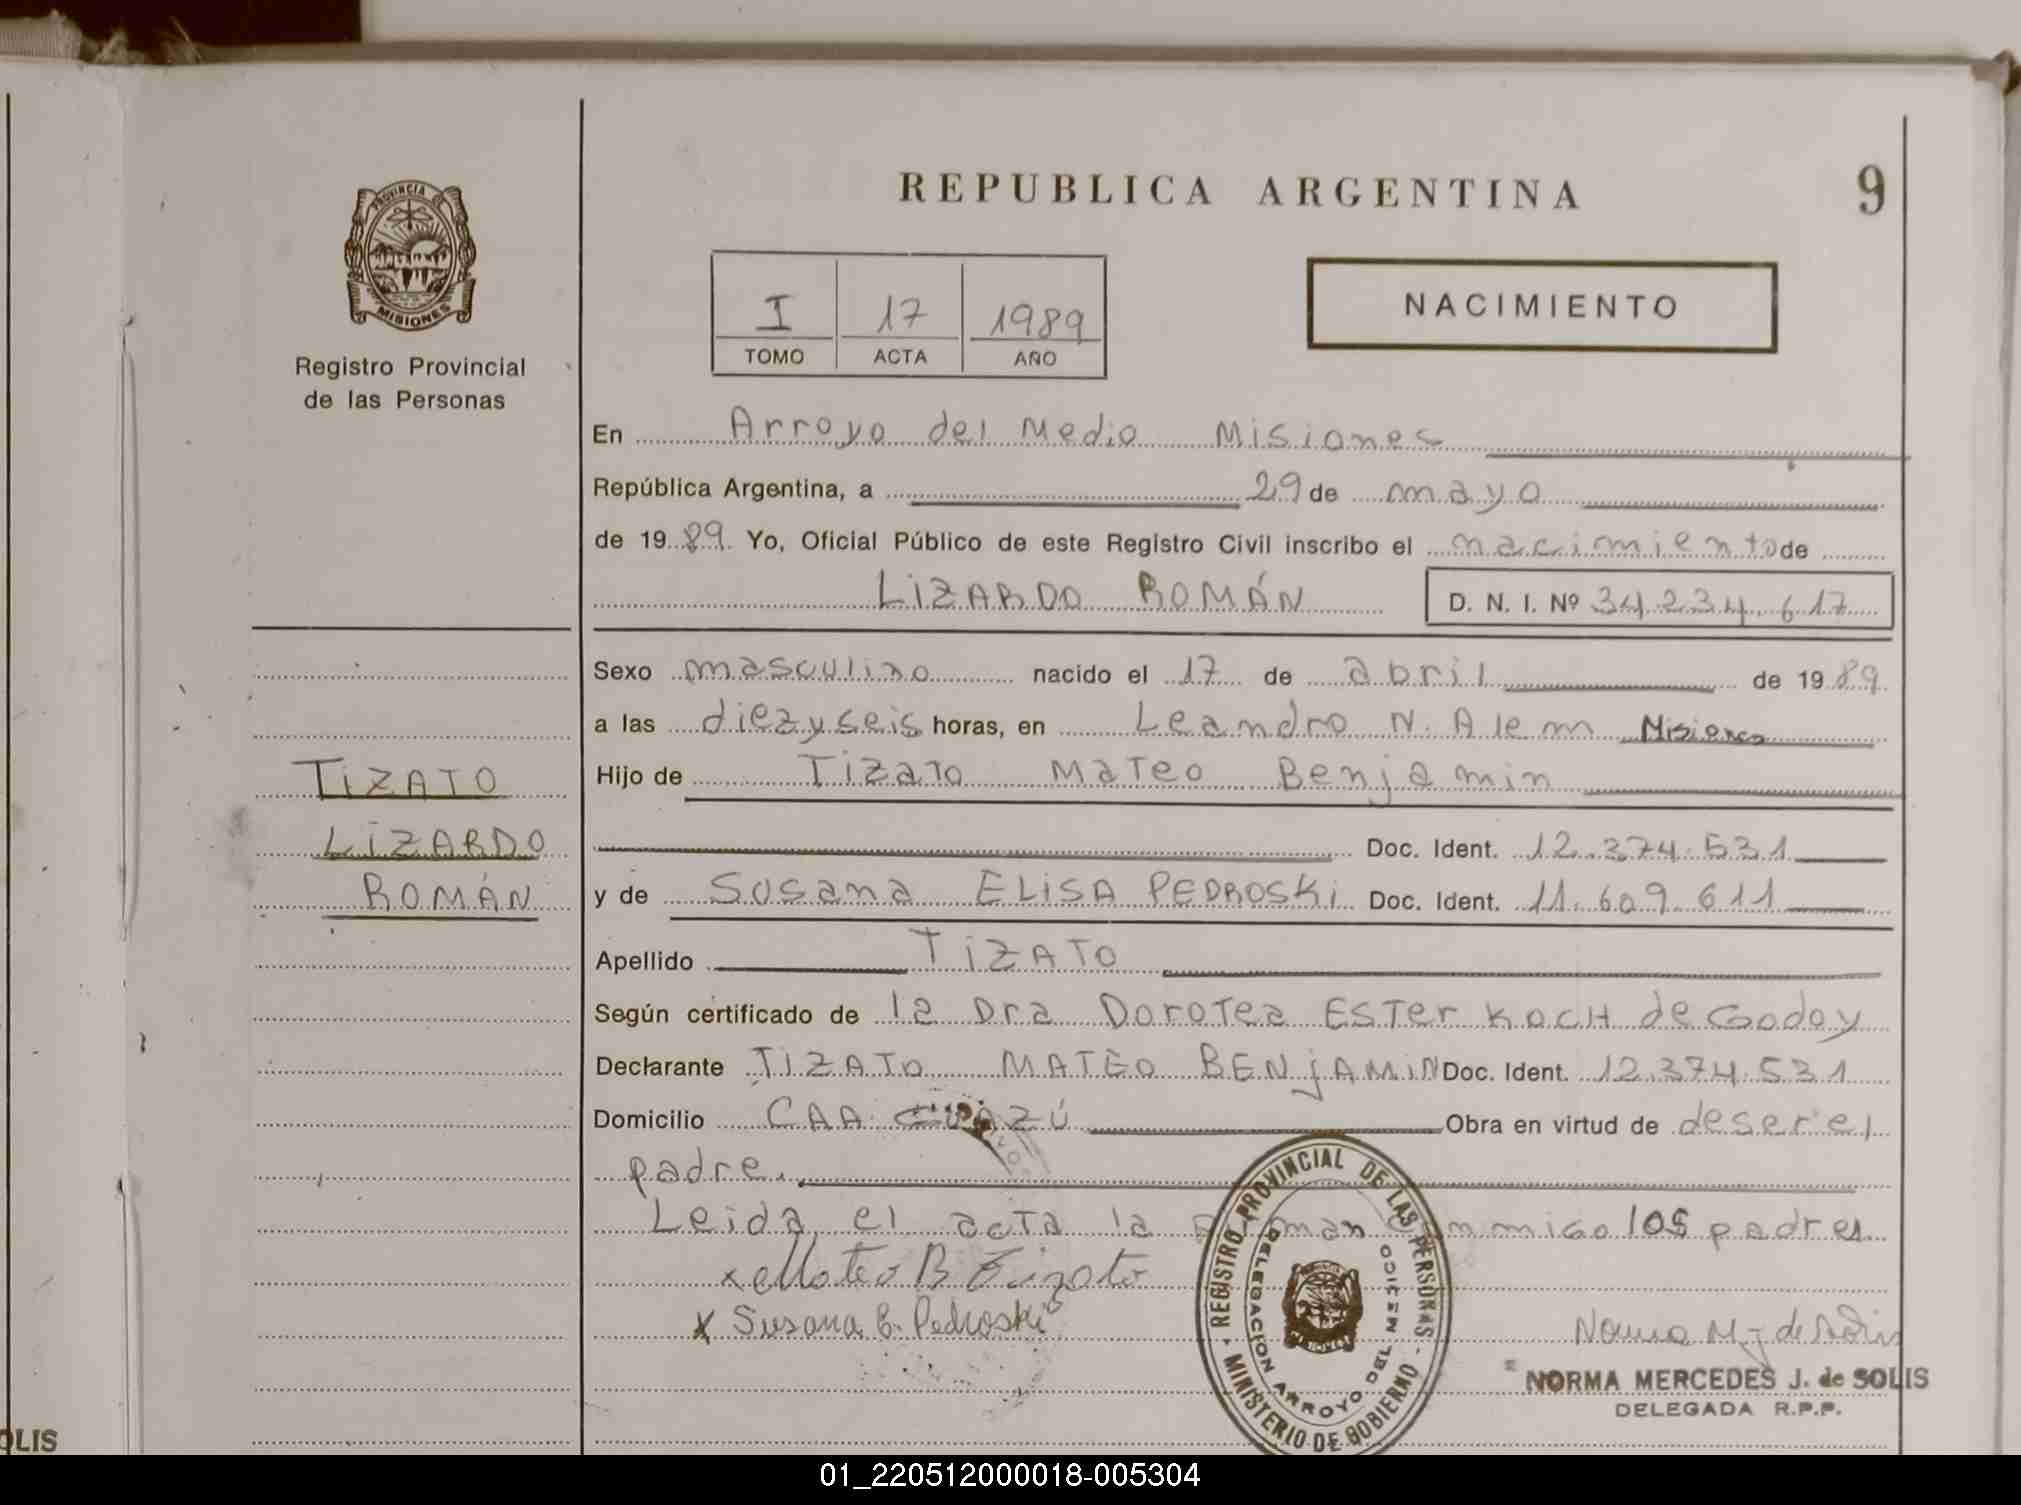 REPUBLICA ARGENTINA
9
PROVINCIA DE
MISIONES
Registro Provincial
de las Personas
I 17 1989
TOMO ACTA AÑO
NACIMIENTO
En Arroyo del Medio Misiones
República Argentina, a 29 de mayo
de 1989. Yo, Oficial Público de este Registro Civil inscribo el nacimiento de
LIZARDO ROMÁN D. N. I. Nº 34.234.617
Sexo masculino nacido el 17 de abril de 1989
a las diezyseis horas, en Leandro N. Alem Misiones
Hijo de Tizato Mateo Benjamin
Doc. Ident. 12.374.531
y de Susana ELISA PEDROSKi Doc. Ident. 11.609.611
Apellido TIZATO
Según certificado de la Dra Dorotea ESTer KOCH de Godoy
Declarante TIZATO MATEO BENjAMIN Doc. Ident. 12.374.531
Domicilio CAA GUAZÚ Obra en virtud de deser el
padre.
Leida el acta la man mmigo los padres
x Mateo B Tizato
x Susana E. Pedroski
TIZATO
LIZARDO
ROMÁN
REGISTRO PROVINCIAL DE LAS PERSONAS
MINISTERIO DE GOBIERNO
DELEGACION ARROYO DEL MEDIO
Norma M. J de Solis
NORMA MERCEDES J. de SOLIS
DELEGADA R.P.P.
OLIS
01_220512000018-005304